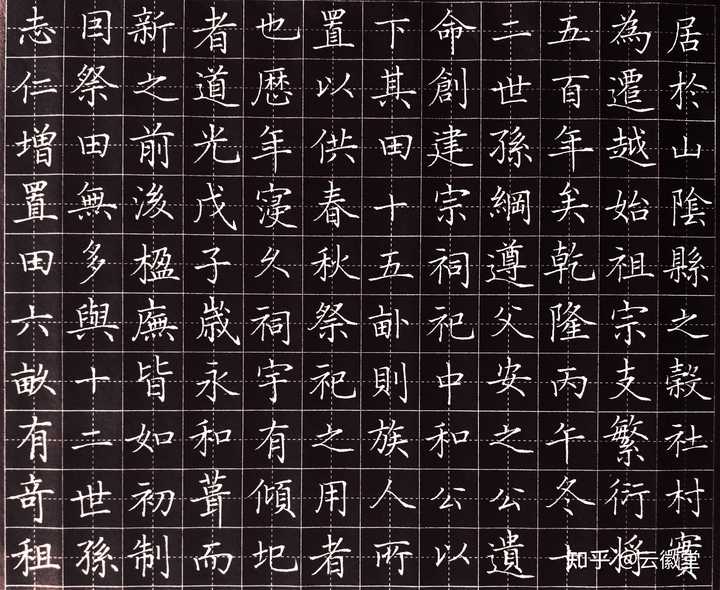 居於山陰縣之穀社村實
為遷越始祖宗支繁衍將
五百年矣乾隆丙午冬十
二世孫綱遵父安之公遺
命創建宗祠祀中和公以
下其田十五畝則族人所
置以供春秋祭祀之用者
也歴年寖久祠宇有傾圮
者道光戊子嵗永和葺而
新之前後楹廡皆如初制
囙祭田無多與十二世孫
志仁增置田六畝有竒租
知乎 @云徽